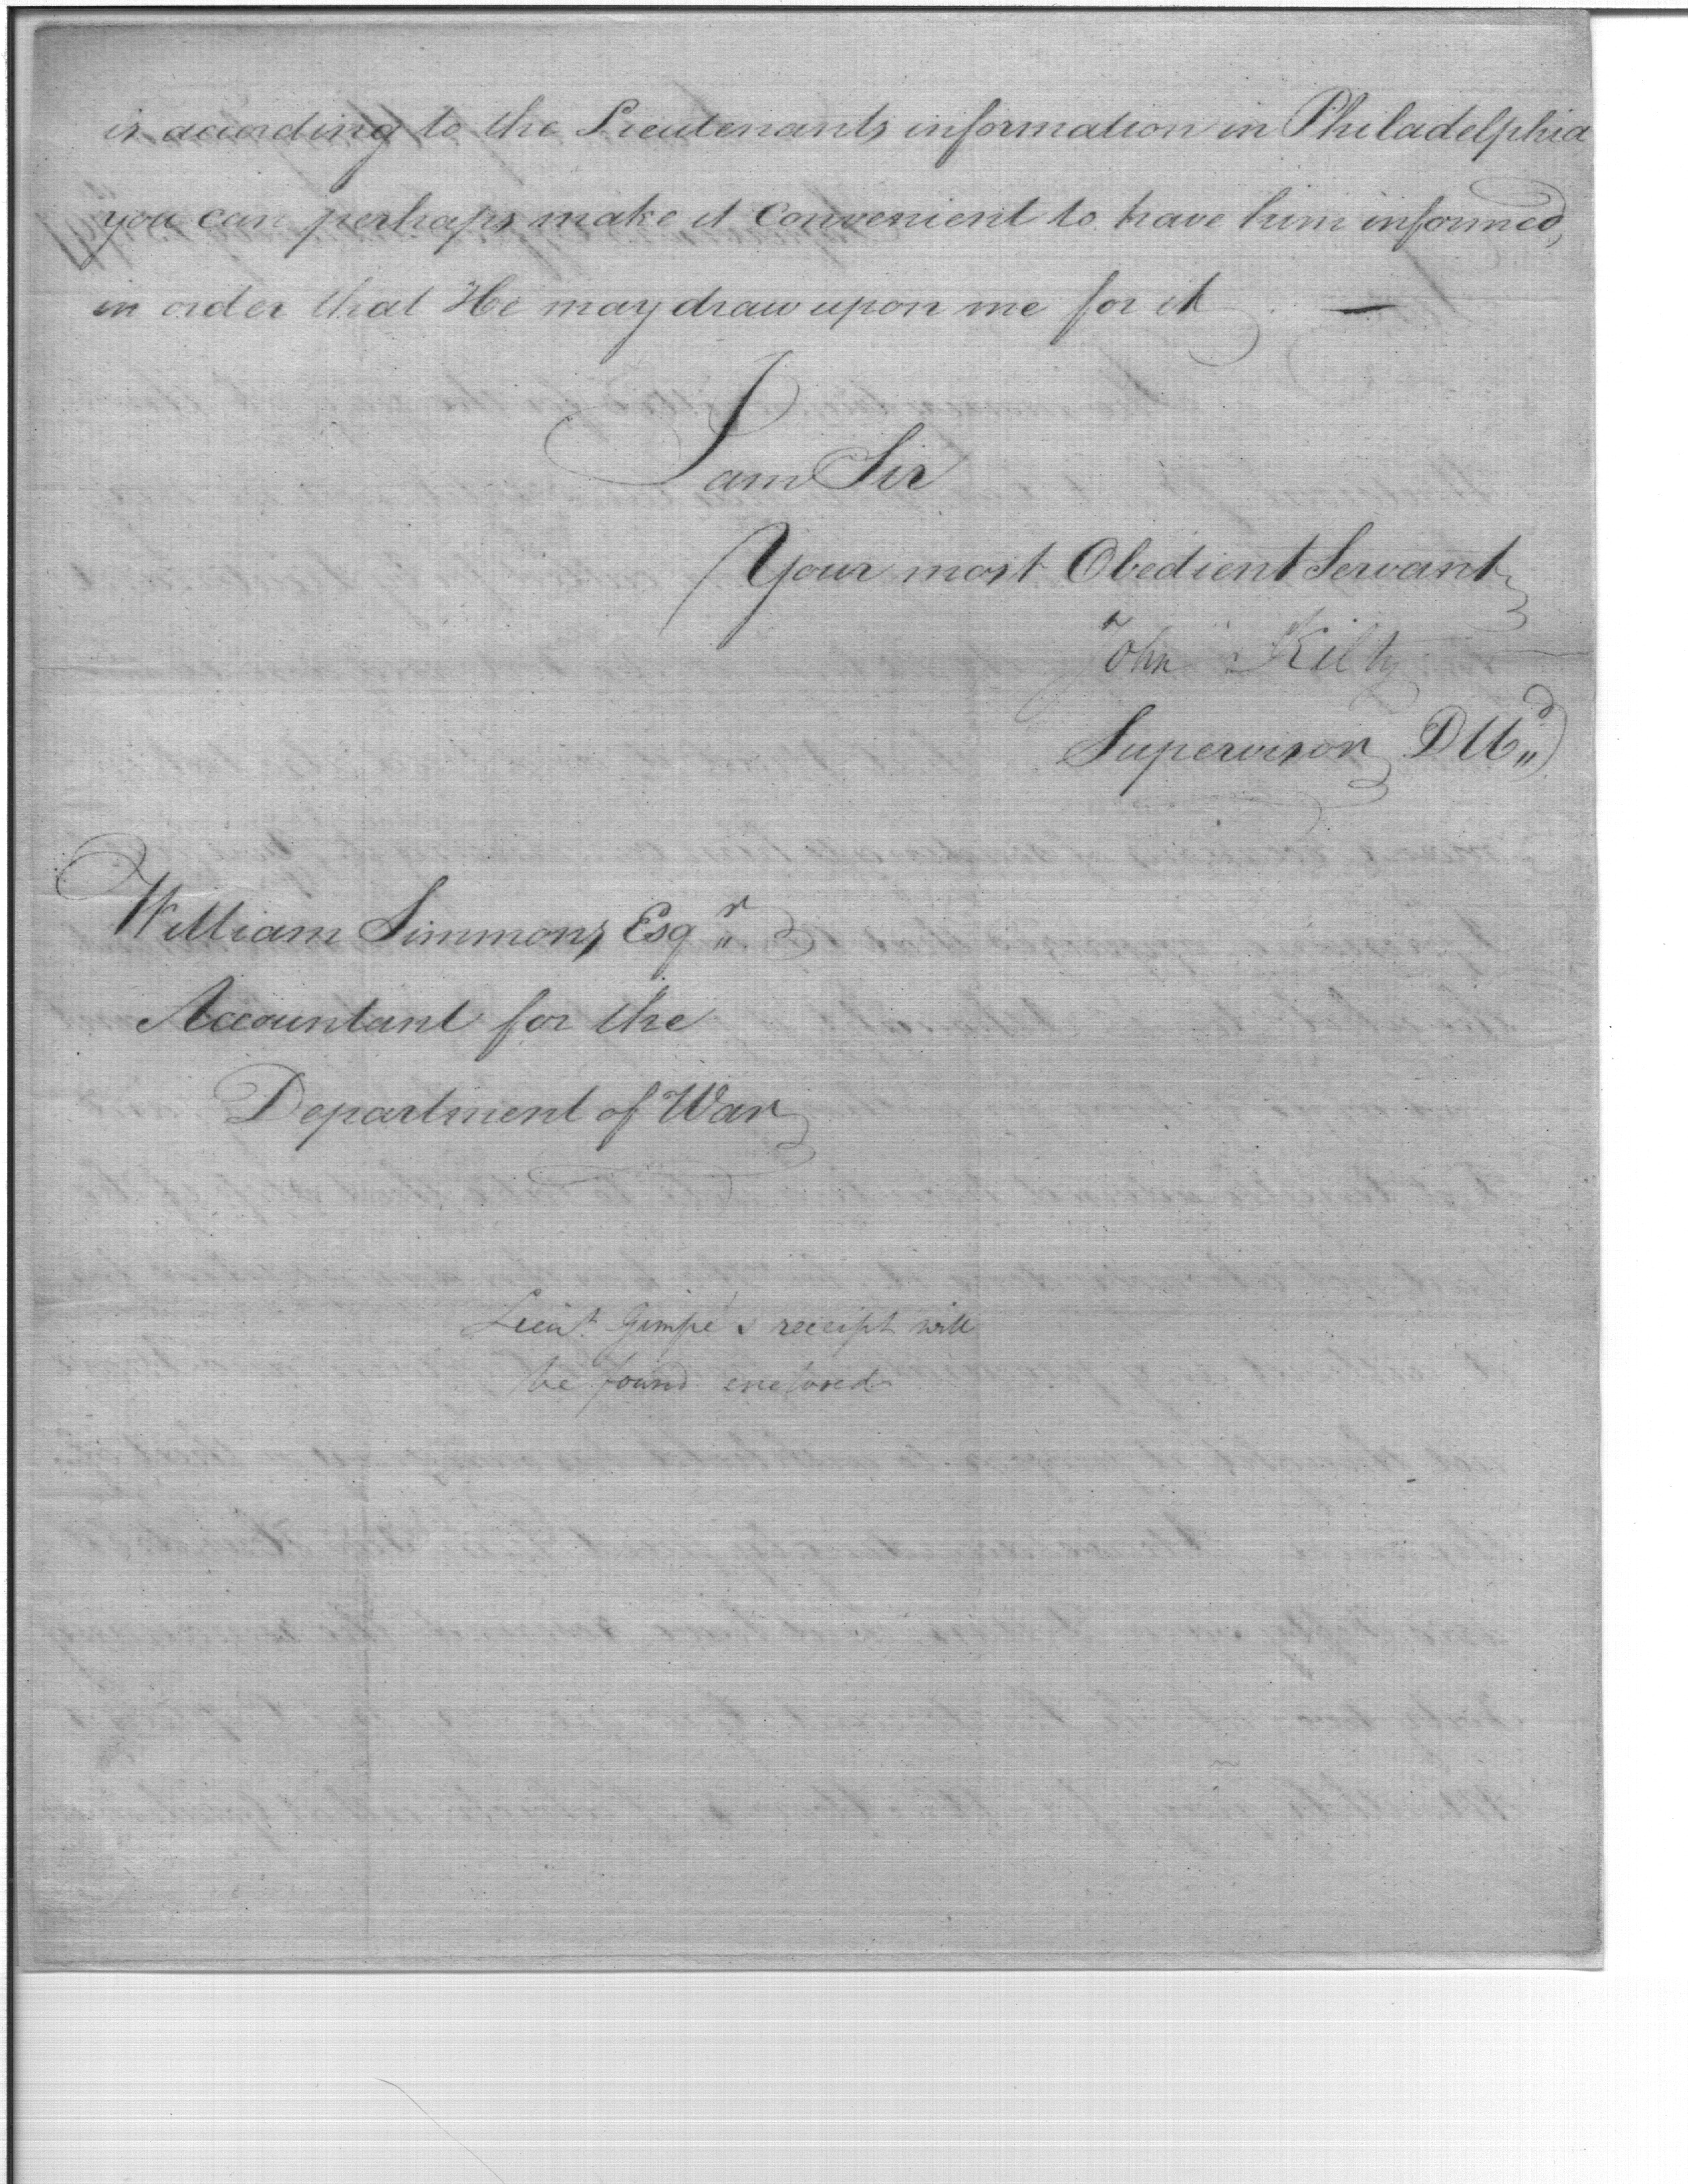 is according to the Lieutenants information in Philadelphia
you can perhaps make it Convenient to have him informed,
in order that He may draw upon me for it —
I am Sir
Your most Obedient Servant
John Kilty
Supervisor D Md
William Simmons Esqr
Accountant for the
Department of War
Lieut Gimpe's receipt will
be found enclosed